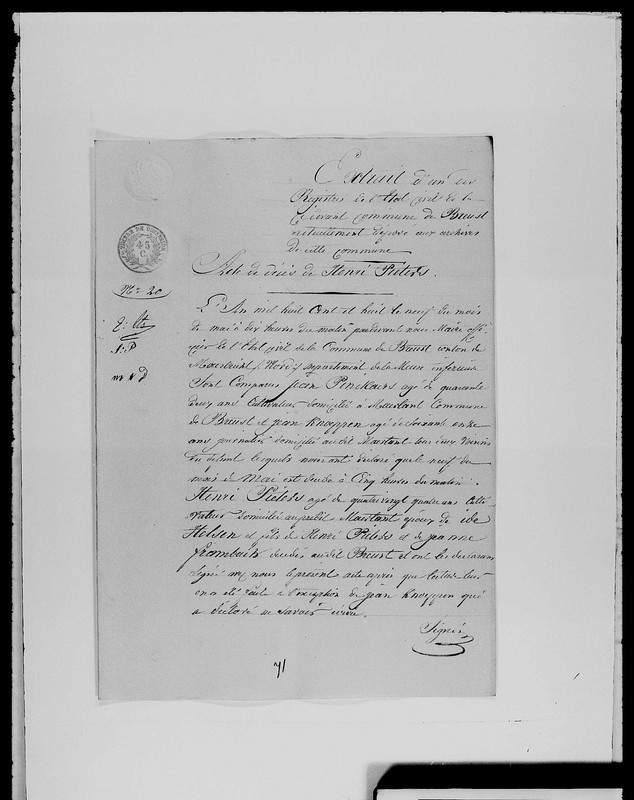 Extrait d'un des
Registres de l'Etat civil de la
ci devant commune de Breust
actuellement déposé aux archives
de cette commune
Acte de décès de Henri Pieters.
45
C
No 20
L'An mil huit Cent et huit le neuf du mois
de mai à dix heures du matin pardevant nous Maire offi
cier de l'Etat civil de la Commune de Breust canton de
Maestricht (Nord) département de la Meuse inférieure
Sont Comparus jean Penckaers agé de quarante
deux ans Cultivateur domicilié à Maerlant Commune
de Breust et jean Knoppen agé de Soixante onze
ans journalier domicilié audit Maerlant tous deux Voisins
du défunt lesquels nous ont déclaré que le neuf du
mois de Mai est décédé à Cinq heures du matin
Henri Pieters agé de quatrevingt quatre ans Culti
vateur domicilié au susdit Maerlant époux de ida
Holsen et fils de Henri Pieters et de jeanne
frambachs décédés audit Breust et ont les déclarans
signé avec nous le présent acte après que lecture leur
en a été faite à l'exception de jean Knoppen qui
a déclaré ne savoir écrire.
Signés
71